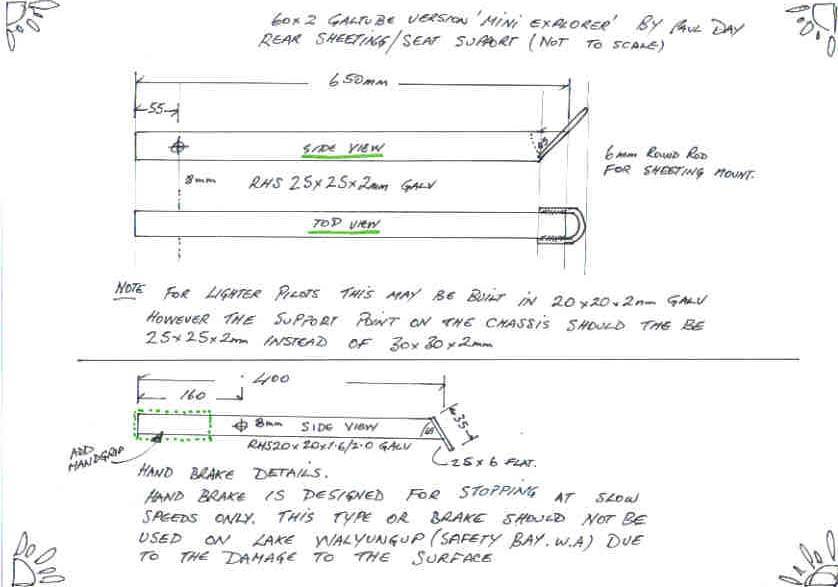 60x2 GALTUBE VERSION 'MINI EXPLORER' BY PAUL DAY
REAR SHEETING/SEAT SUPPORT (NOT TO SCALE)
650mm
55
SIDE VIEW
45
6mm ROUND ROD
FOR SHEETING MOUNT.
8mm
RHS 25x25x2mm GALV
TOP VIEW
NOTE FOR LIGHTER PILOTS THIS MAY BE BUILT IN 20x20x2mm GALV
HOWEVER THE SUPPORT POINT ON THE CHASSIS SHOULD THE BE
25x25x2mm INSTEAD OF 30x30x2mm
400
160
35
8mm SIDE VIEW
RHS20x20x1.6/2.0 GALV
ADD
HANDGRIP
25x6 FLAT.
HAND BRAKE DETAILS.
HAND BRAKE IS DESIGNED FOR STOPPING AT SLOW
SPEEDS ONLY. THIS TYPE OR BRAKE SHOULD NOT BE
USED ON LAKE WALYUNGUP (SAFETY BAY. W.A) DUE
TO THE DAMAGE TO THE SURFACE